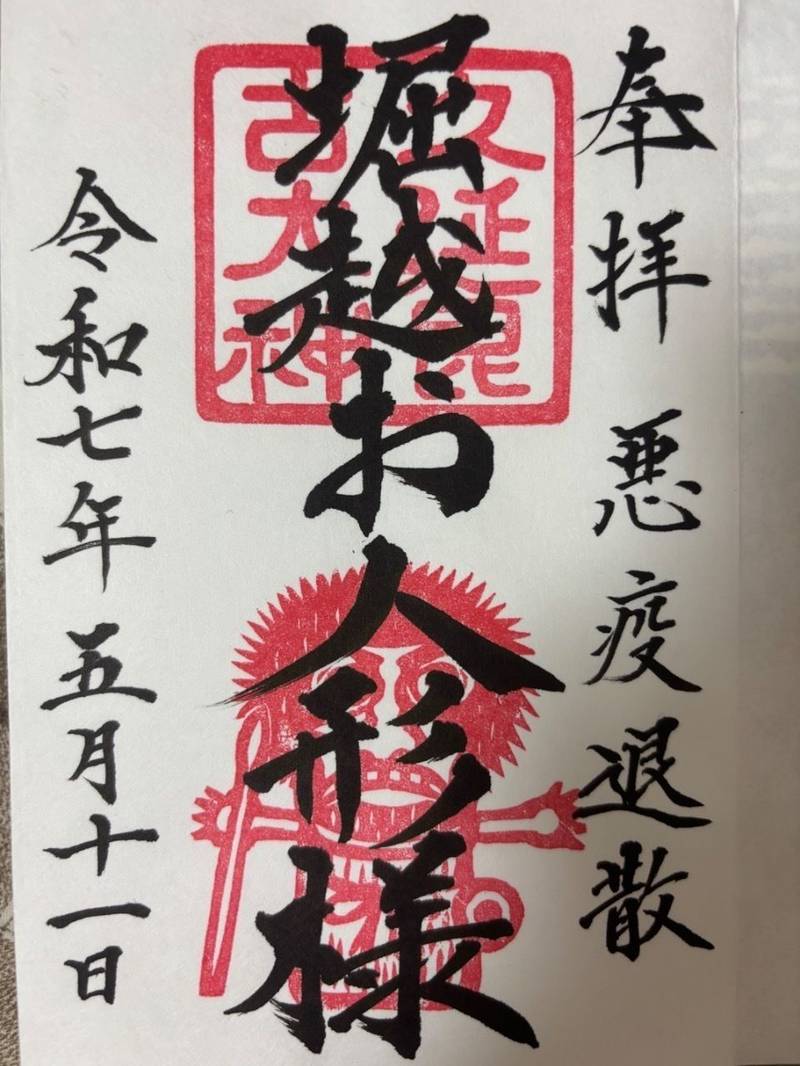 奉拝 悪疫退散
堀越お人形様
令和七年五月十一日
久延毘
古大神